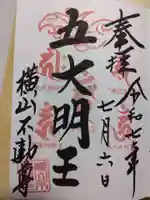 奉拝
令和七年
七月六日
五大明王
横山不動尊